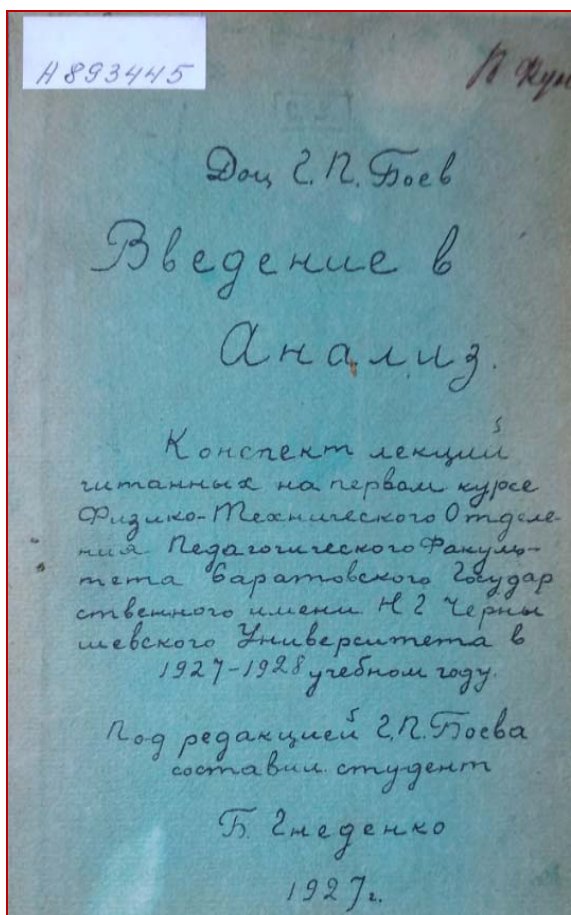 А893445
Доц Г.П. Боев
Введение в
Анализ.
Конспект лекций
читанных на первом курсе
Физико-Технического Отделе-
ния Педагогического Факуль-
тета Саратовского Государ
ственного имени Н Г Черны
шевского Университета в
1927-1928 учебном году.
Под редакцией Г.П. Боева
составил студент
Б. Гнеденко
1927г.